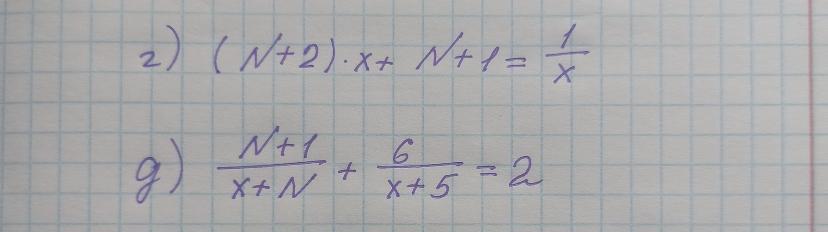 г) (N+2)·x+ N+1 = 1/x
д) (N+1)/(x+N) + 6/(x+5) = 2